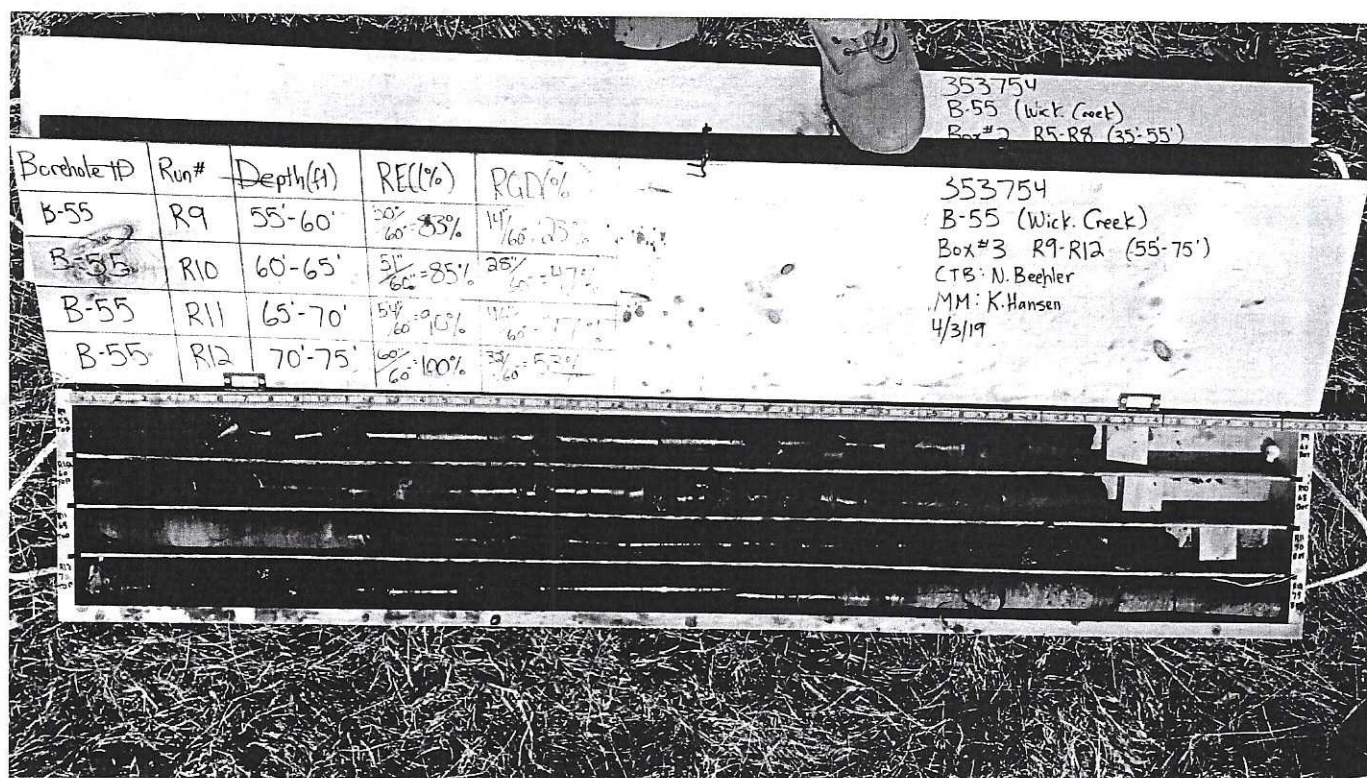 353754
B-55 (Wick. Creek)
Box #2 R5-R8 (35'-55')
Borehole ID Run# Depth(ft) REC(%) RQD(%
B-55 R9 55'-60' 50"/60"=83% 14"/60"=23%
B-55 R10 60'-65' 51"/60"=85% 28"/60"=47%
B-55 R11 65'-70' 54"/60"=90% /60"=77%
B-55 R12 70'-75' 60"/60"=100% 32"/60"=53%
353754
B-55 (Wick. Creek)
Box #3 R9-R12 (55'-75')
CTB: N. Beehler
MM: K. Hansen
4/3/19